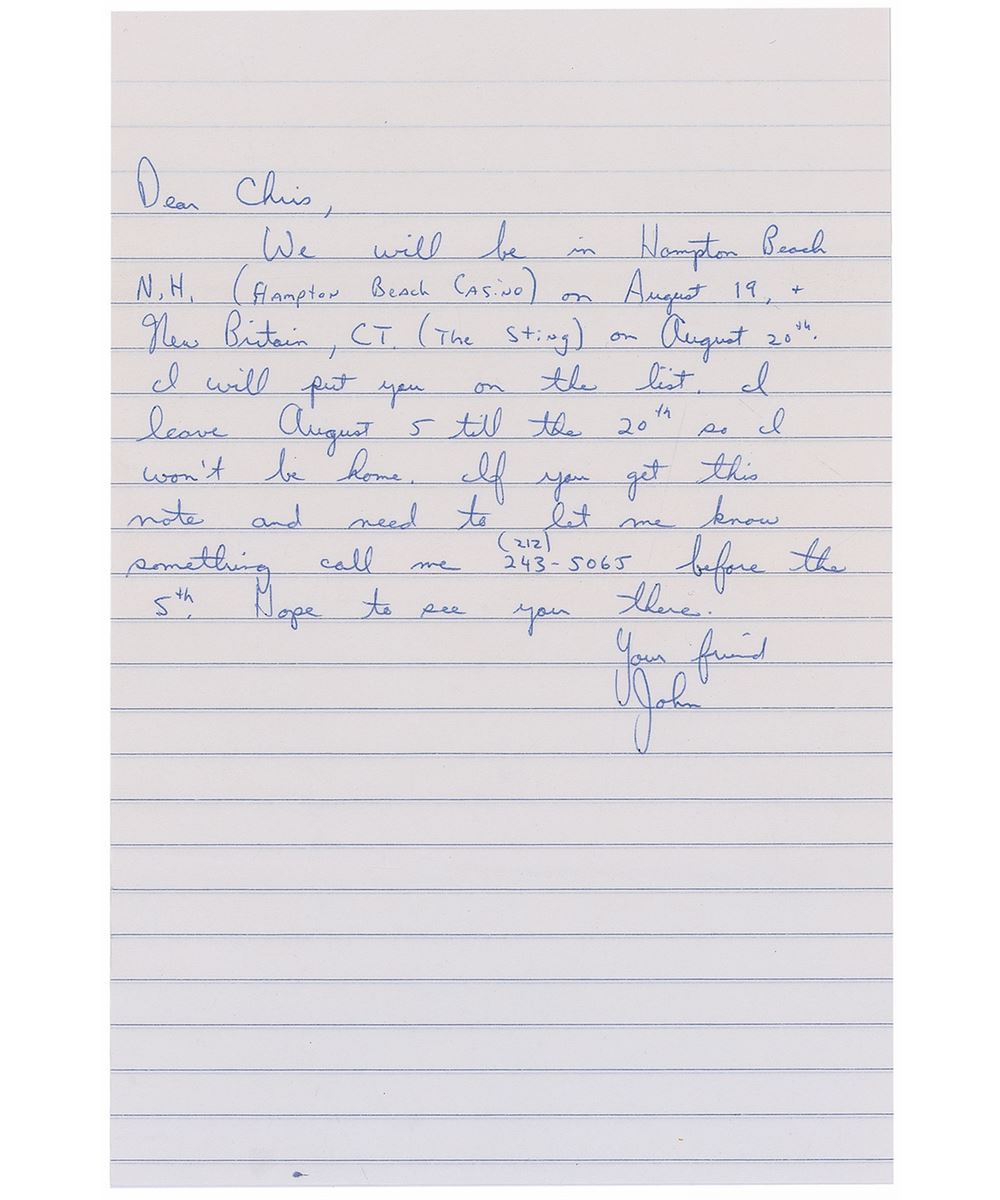 Dear Chris,
We will be in Hampton Beach
N.H. (Hampton Beach Casino) on August 19, +
New Britain, CT. (The Sting) on August 20th.
I will put you on the list. I
leave August 5 till the 20th so I
won't be home. If you get this
note and need to let me know
(212)
something call me 243-5065 before the
5th. Hope to see you there.
Your friend
John